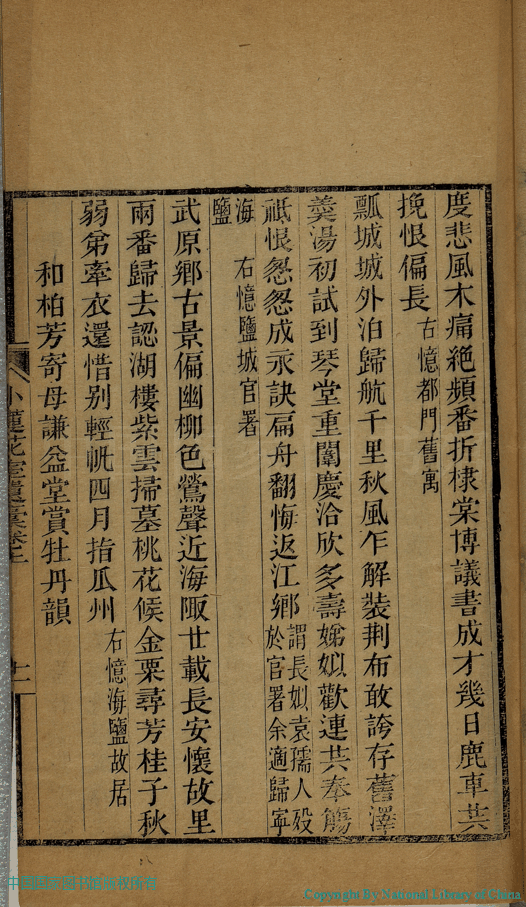 度悲風木痛絶頻番折棣棠博議書成才幾日鹿車共
挽恨偏長右憶都門舊寓
瓢城城外泊歸航千里秋風乍解裝荆布敢誇存舊澤
羹湯初試到琴堂重闈慶洽欣多壽娣姒歡連共奉觴
祗恨怱怱成永訣扁舟翻悔返江鄉謂長姒袁孺人殁
於官署余適歸寧
海鹽
右憶鹽城官署
武原鄉古景偏幽柳色鶯聲近海陬廿載長安懷故里
兩番歸去認湖樓紫雲掃墓桃花候金粟尋芳桂子秋
弱弟牽衣還惜别輕帆四月指瓜州右憶海鹽故居
和柏芳寄母謙益堂賞牡丹韻
小蓮花室遺稾卷上
十一
Copyright By National Library of China